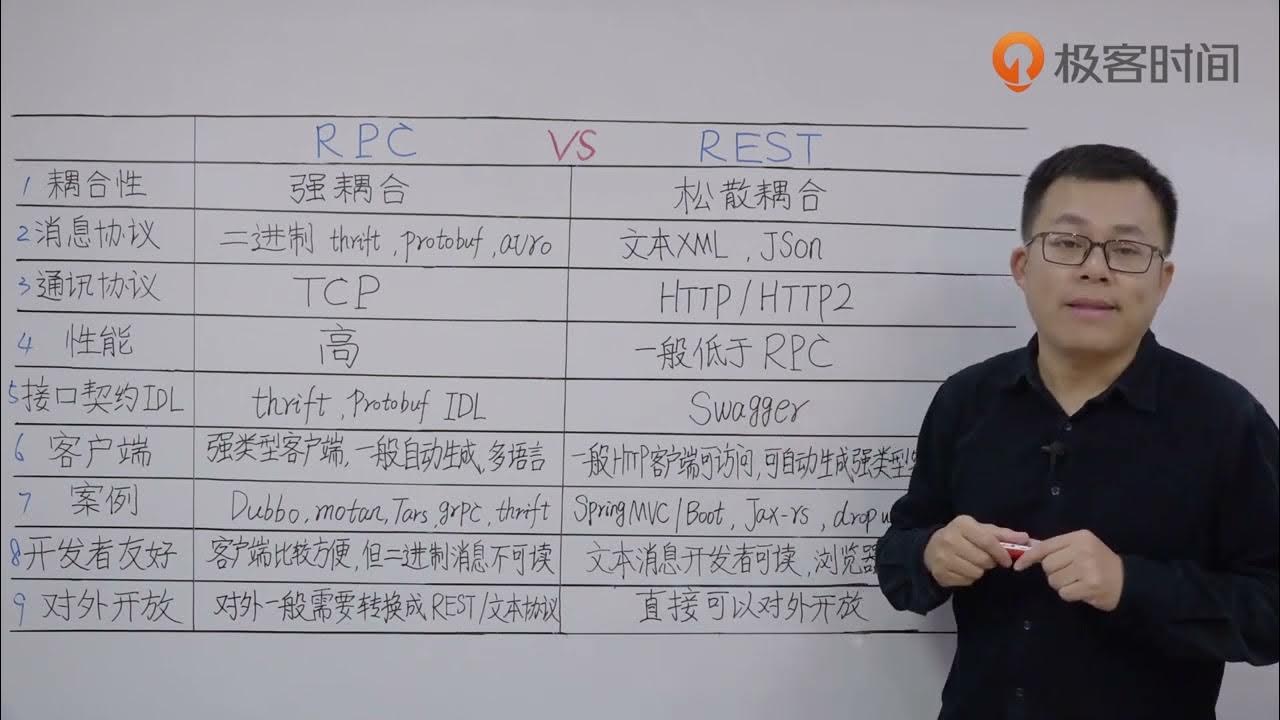 极客时间
RPC VS REST
1 耦合性 强耦合 松散耦合
2 消息协议 二进制 thrift, protobuf, avro 文本XML, JSon
3 通讯协议 TCP HTTP/HTTP2
4 性能 高 一般低于 RPC
5 接口契约IDL thrift, Protobuf IDL Swagger
6 客户端 强类型客户端, 一般自动生成, 多语言 一般HTTP客户端可访问, 可自动生成强类型
7 案例 Dubbo, motan, Tars, grpc, thrift SpringMVC/Boot, Jax-rs,
8 开发者友好 客户端比较方便, 但二进制消息不可读 文本消息开发者可读, 浏览器
9 对外开放 对外一般需要转换成 REST/文本协议 直接可以对外开放